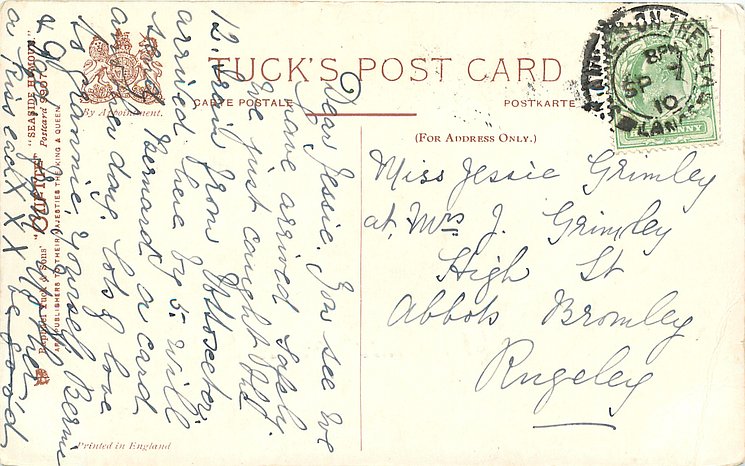 TUCK'S POST CARD
By Appointment.
CARTE POSTALE
POSTKARTE
(FOR ADDRESS ONLY.)
Raphael Tuck & Sons' "OILETTE" "SEASIDE HUMOUR." Postcard 9507
ART PUBLISHERS TO THEIR MAJESTIES THE KING & QUEEN.
Printed in England
ANNE'S-ON-THE-SEA
8 PM
SP 1
10
LANCS
PENNY
Dear Jessie. You see we
have arrived safely.
We just caught the
12. train from Uttoxeter.
arrived here by 5. Will
send Bernard a card
another day. Lots of love
to Fannie, Yourself, Bernie
&
a kiss each X X X be good
Miss Jessie Grimley
at Mrs J. Grimley
High St
Abbots Bromley
Rugeley